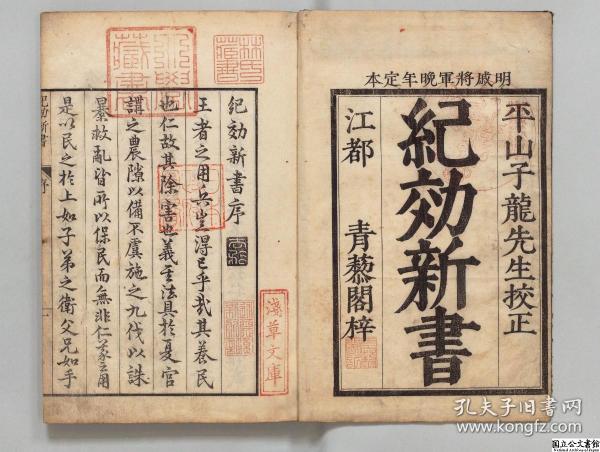 明戚將軍晩年定本
平山子龍先生挍正
紀効新書
江都　青藜閣梓
紀効新書序
王者之用兵豈得已乎哉其養民
也仁故其除害也義至法具於夏官
講之農隙以備不虞施之九伐以誅
暴救亂皆所以保民而無非仁義之用
是以民之於上如子弟之衛父兄如手
紀効新書
序
淺草文庫
孔夫子旧书网
www.kongfz.com
国立公文書館
National Archives of Japan